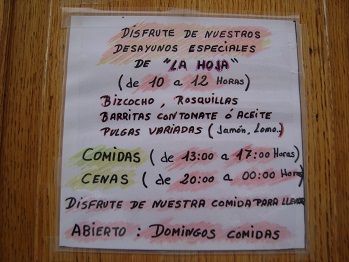 DISFRUTE DE NUESTROS
DESAYUNOS ESPECIALES
DE "LA HOJA"
(de 10 a 12 HORAS)
BIZCOCHO, ROSQUILLAS
BARRITAS CON TOMATE Ó ACEITE
PULGAS VARIADAS (Jamón, Lomo.)
COMIDAS (de 13:00 a 17:00 Horas)
CENAS (de 20:00 a 00:00 Horas)
DISFRUTE DE NUESTRA COMIDA PARA LLEVAR
ABIERTO: DOMINGOS COMIDAS